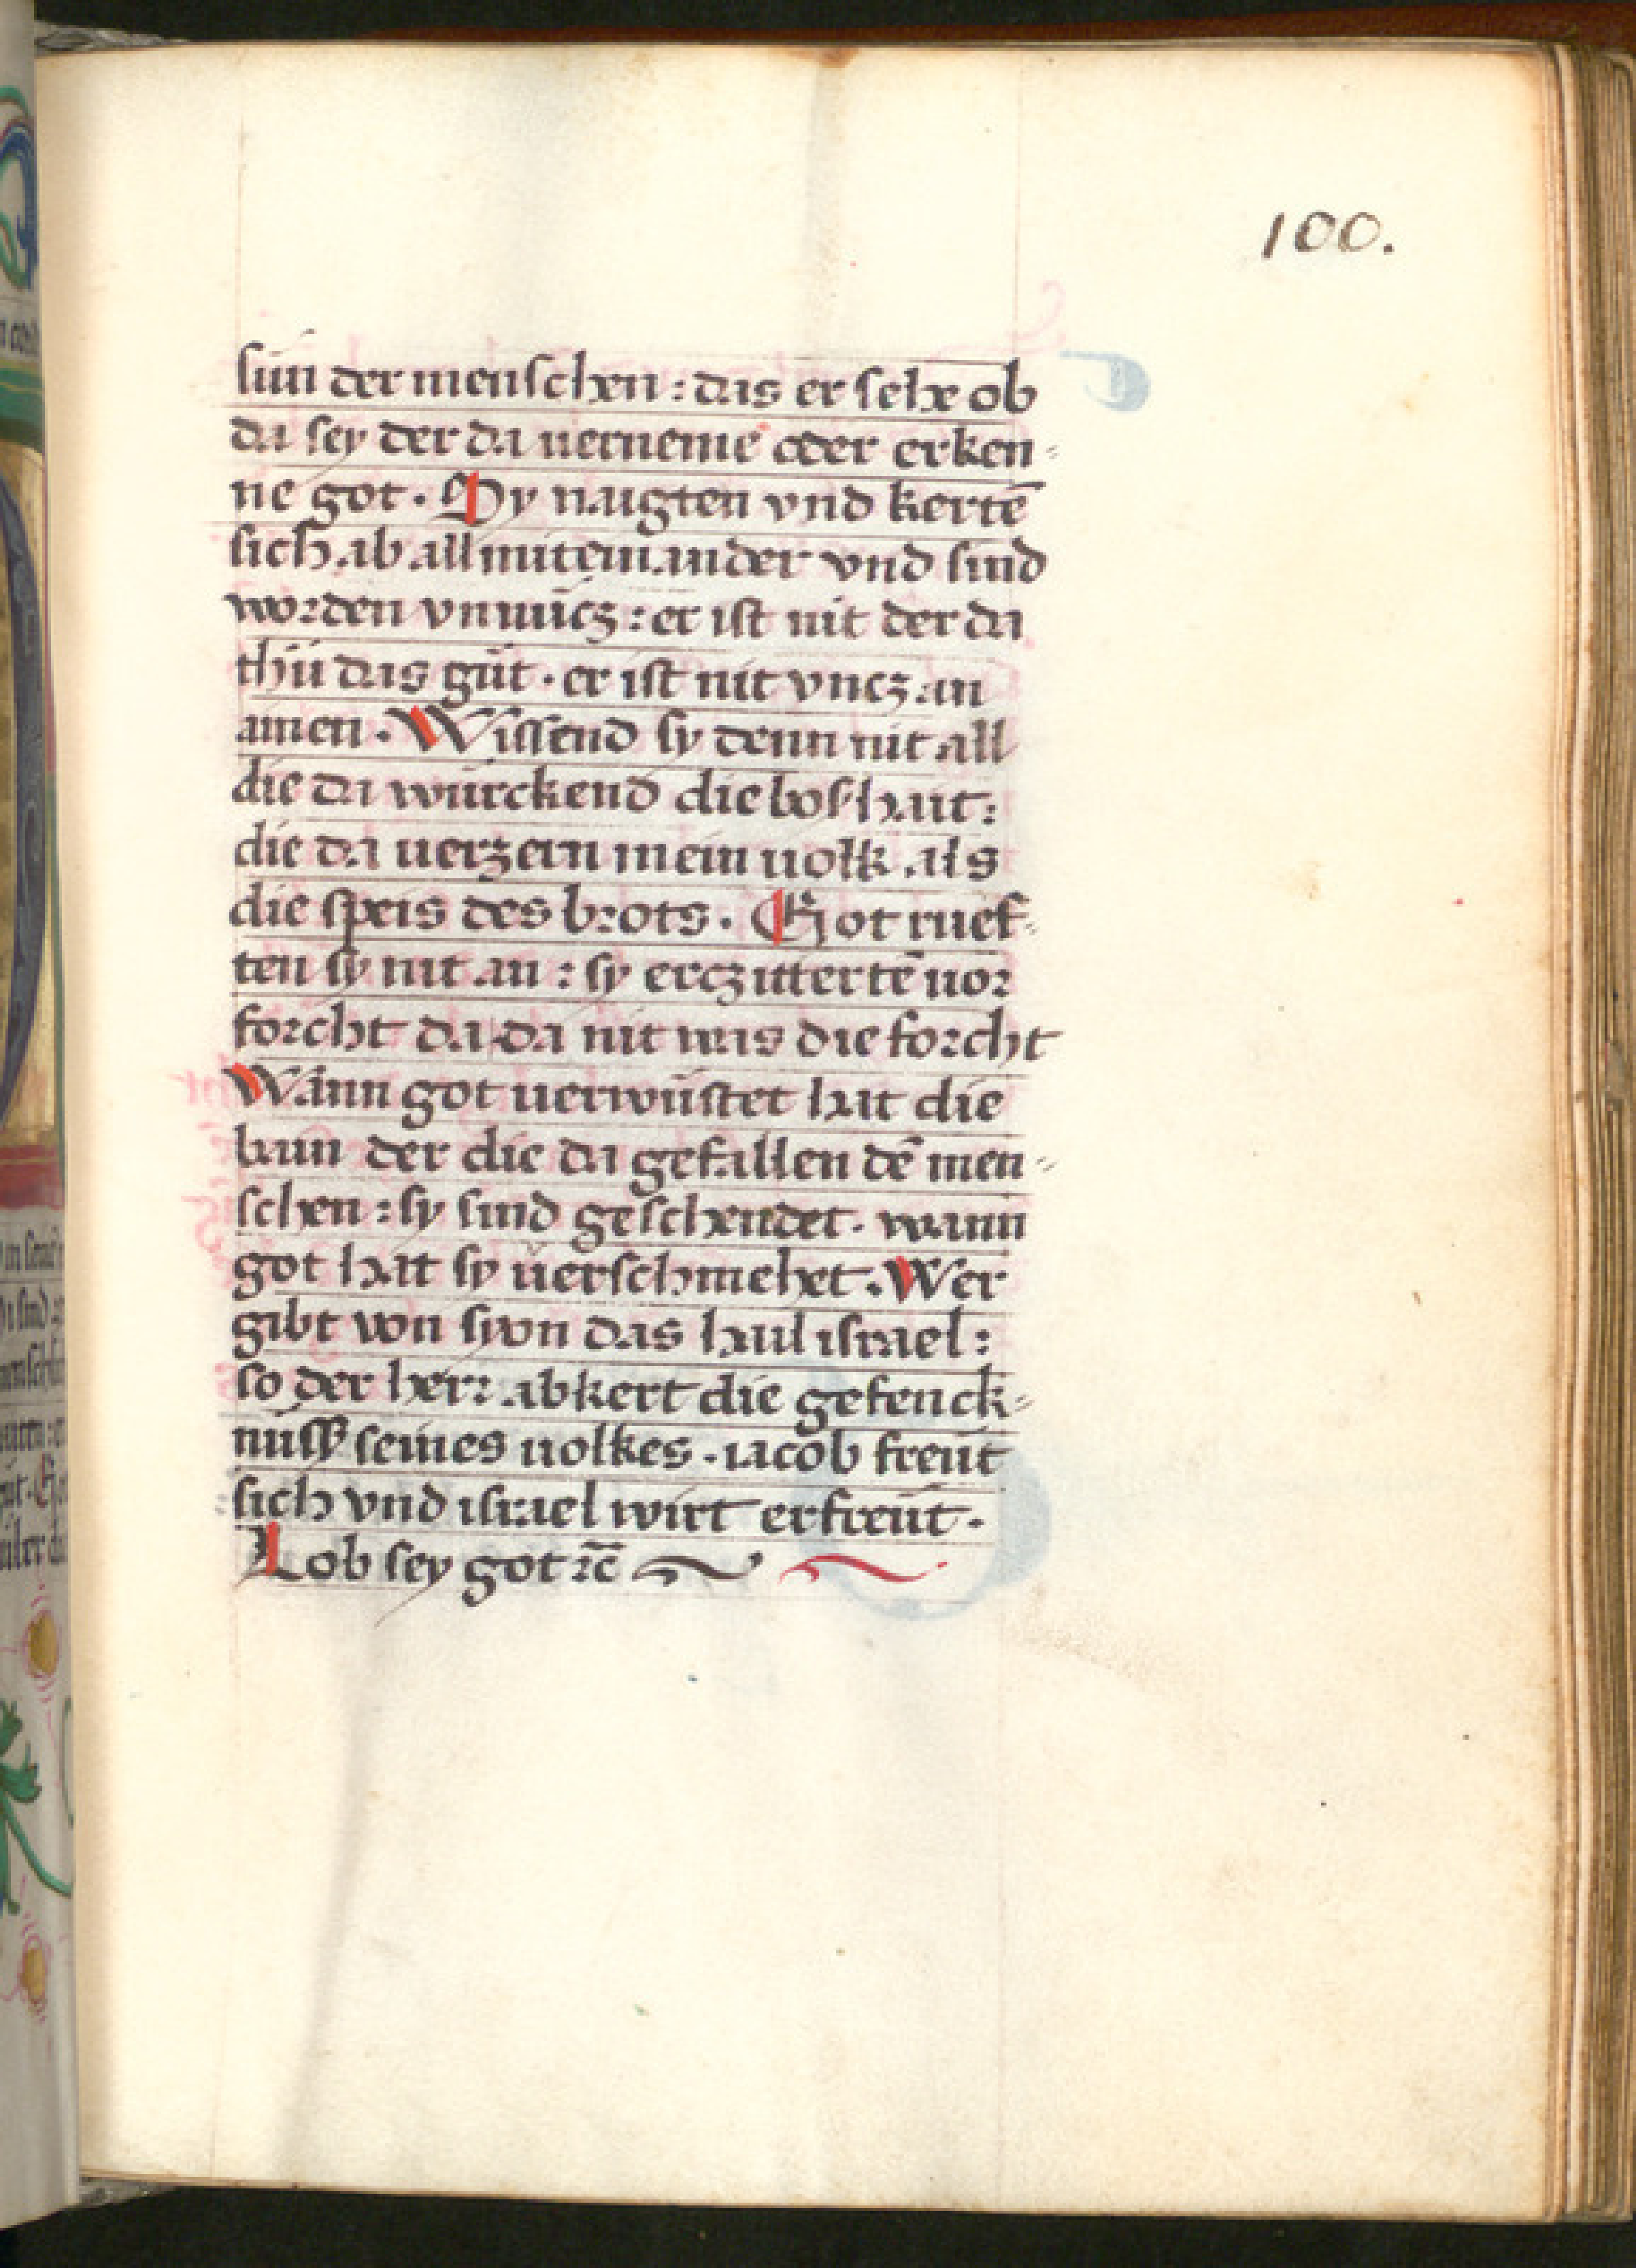 100.
sün der menschen : das er sehe ob
da sey der da verneme oder erken=
ne got . Sy naigten vnd kertē
sich ab all miteinander vnd sind
worden vnnücz : er ist nit der da
thü das güt . er ist nit vncz an
ainen . Wissend sy denn nit all
die da würckend die boshait :
die da uerzern mein uolk als
die speis des brots . Got ruef=
ten sy nit an : sy erczittertē uor
forcht da da nit was die forcht
Wann got uerwüstet hat die
bain der die da gefallen dē men=
schen : sy sind geschendet . wann
got hat sy uerschmehet . Wer
gibt von syon das hail israel :
so der herr abkert die gefenck=
nuss seines uolkes . iacob freüt
sich vnd israel wirt erfreüt .
Lob sey got ⁊c̄